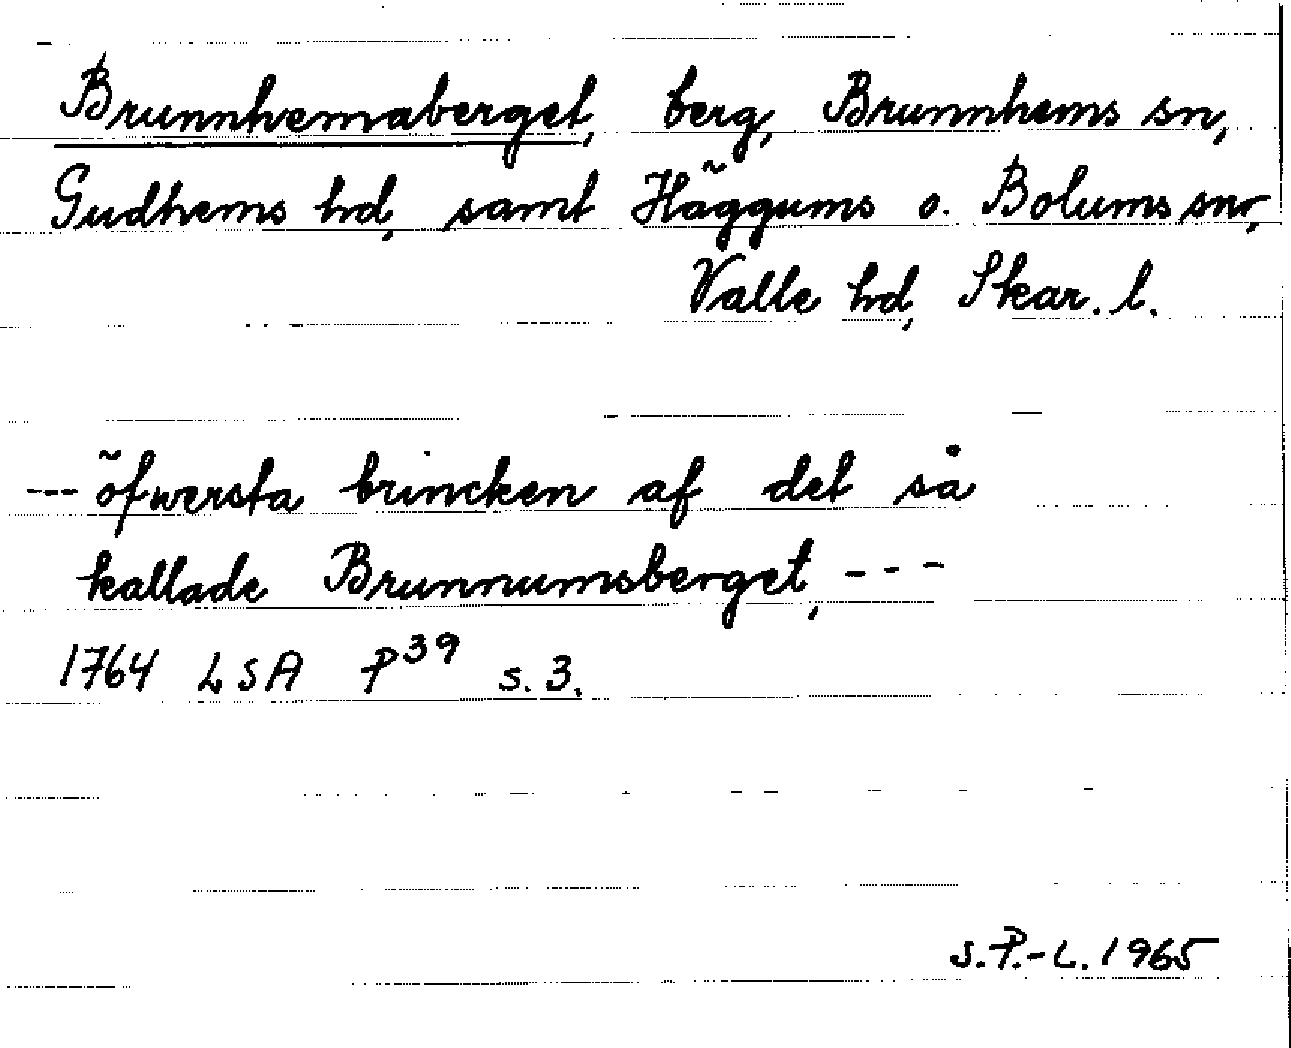 Brunnhemaberget, berg, Brunnhems sn,
Gudhems hd, samt Häggums o. Bolums snr,
Valle hd, Skar. l.
--- öfwersta brincken af det så
kallade Brunnumsberget, ---
1764 LSA P39 s. 3.
S.P.-L. 1965